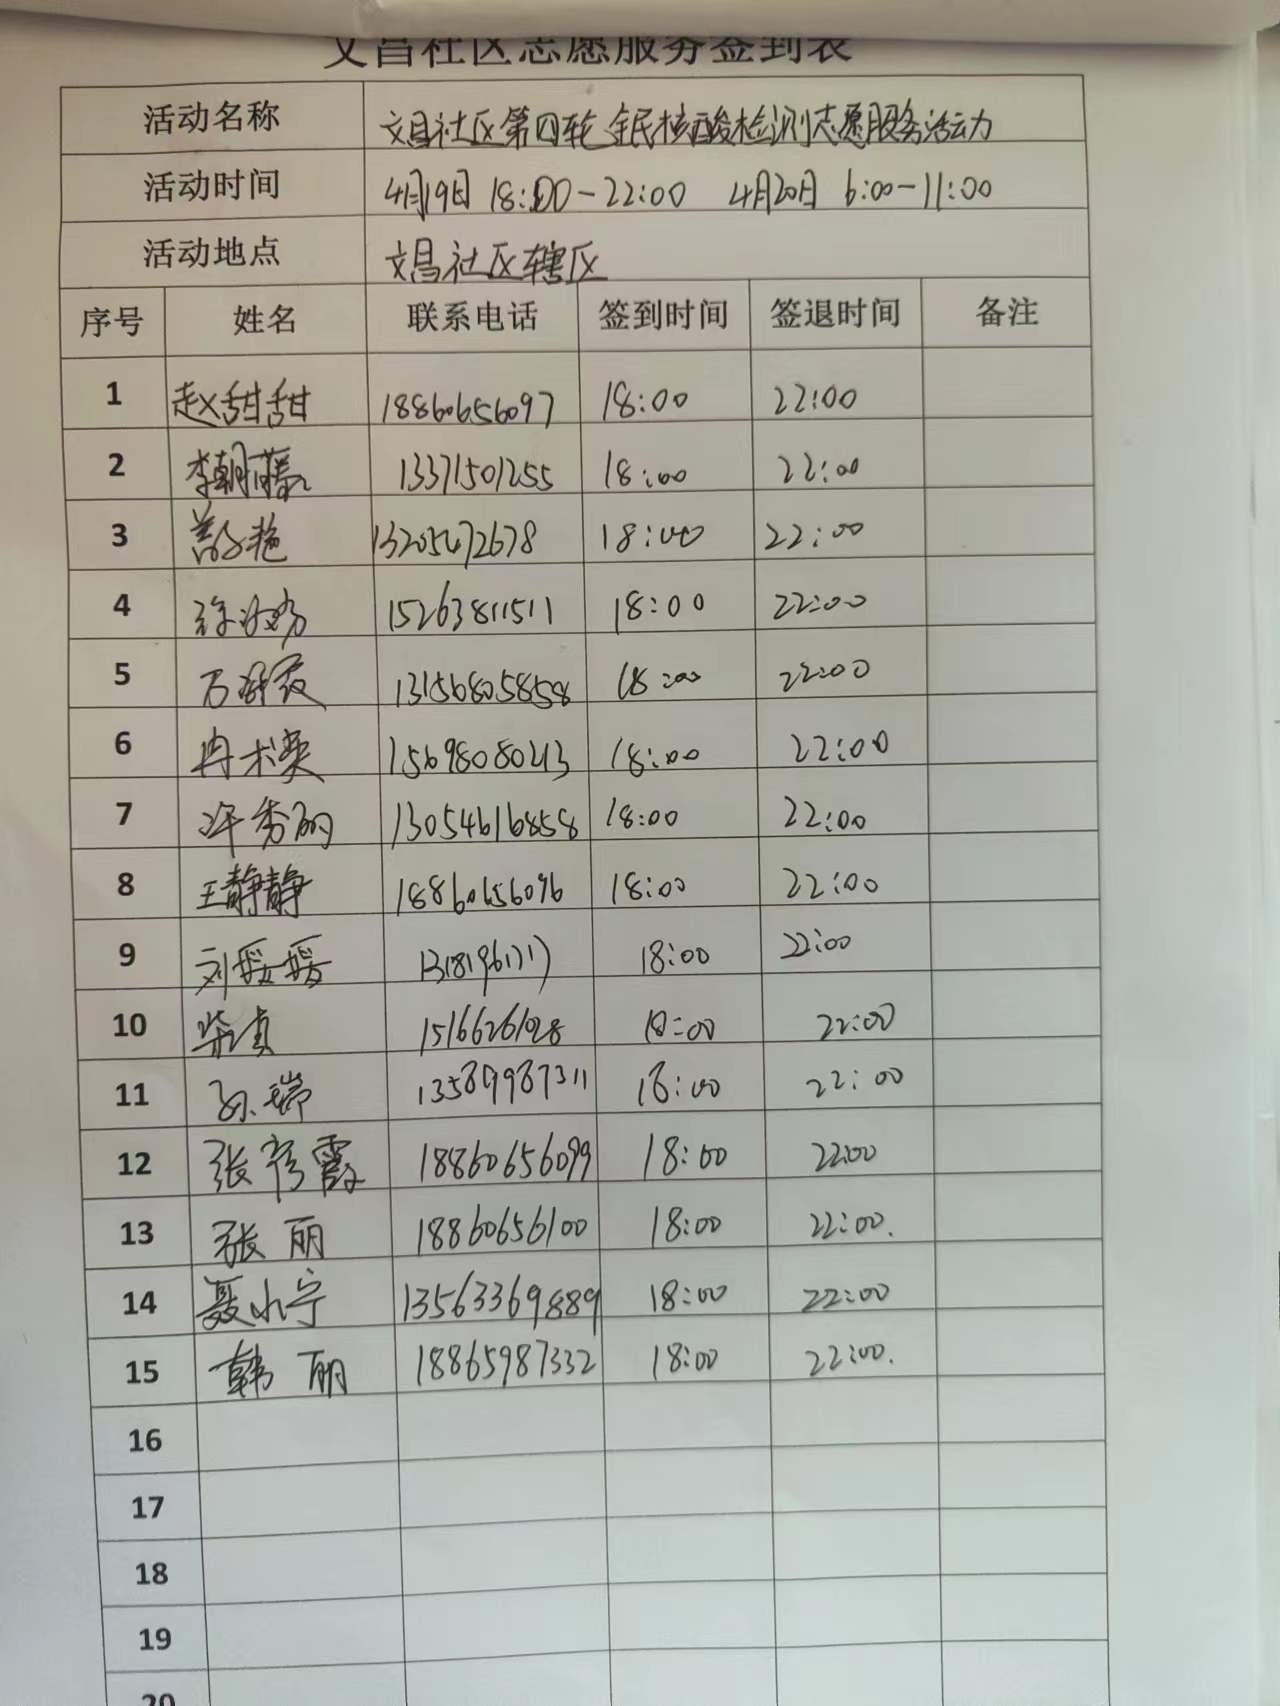 文昌社区志愿服务签到表
活动名称 文昌社区第四轮全民核酸检测志愿服务活动
活动时间 4月19日 18:00-22:00 4月20日 6:00-11:00
活动地点 文昌社区辖区
序号 姓名 联系电话 签到时间 签退时间 备注
1 赵甜甜 18860656097 18:00 22:00
2 李朝 13371501255 18:00 22:00
3 13205472678 18:00 22:00
4 15263811511 18:00 22:00
5 13156805858 18:00 22:00
6 冉术英 15698080213 18:00 22:00
7 许秀丽 13054616858 18:00 22:00
8 王静静 18860656096 18:00 22:00
9 刘媛媛 18:00 22:00
10 柴贞 18:00 22:00
11 孙瑞 13589987311 18:00 22:00
12 张彦霞 18860656099 18:00 22:00
13 张丽 18860656100 18:00 22:00.
14 聂小宁 13563369889 18:00 22:00
15 韩丽 18865987332 18:00 22:00.
16
17
18
19
20